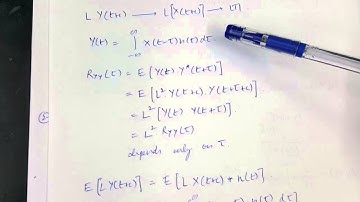 L Y(t+c) → L[X(t+c)] → T[].
Y(t) = ∫ X(t-τ) h(τ) dτ
-∞
R_YY(τ) = E [Y(t) Y*(t+τ)]
= E [L² Y(t+c). Y(t+τ+c)]
= L² [Y(t) Y(t+τ)].
= L² R_YY(τ)
depends only on τ.
E [L Y(t+c)] = E [L X(t+c) * h(t)]